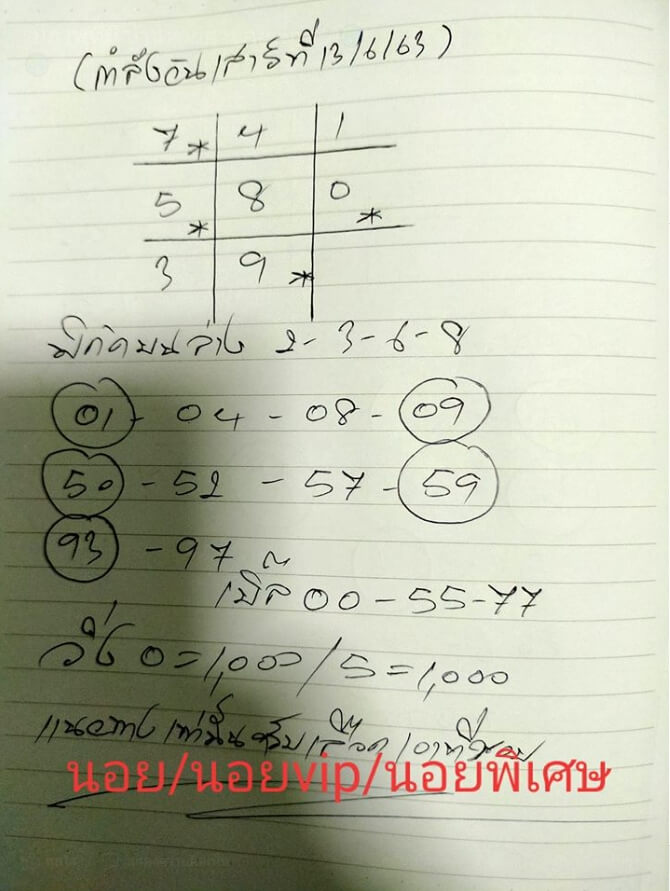 วันเสาร์ที่ 13/6/63)
7* 4 1
5* 8 0*
3 9*
บนล่าง 2-3-6-8
01 - 04 - 08 - 09
50 - 52 - 57 - 59
93 - 97
เบิ้ล 00 - 55 - 77
วิ่ง 0 = 1,000 / 5 = 1,000
แนวทางเท่านั้นครับ
นอย/นอยvip/นอยพิเศษ